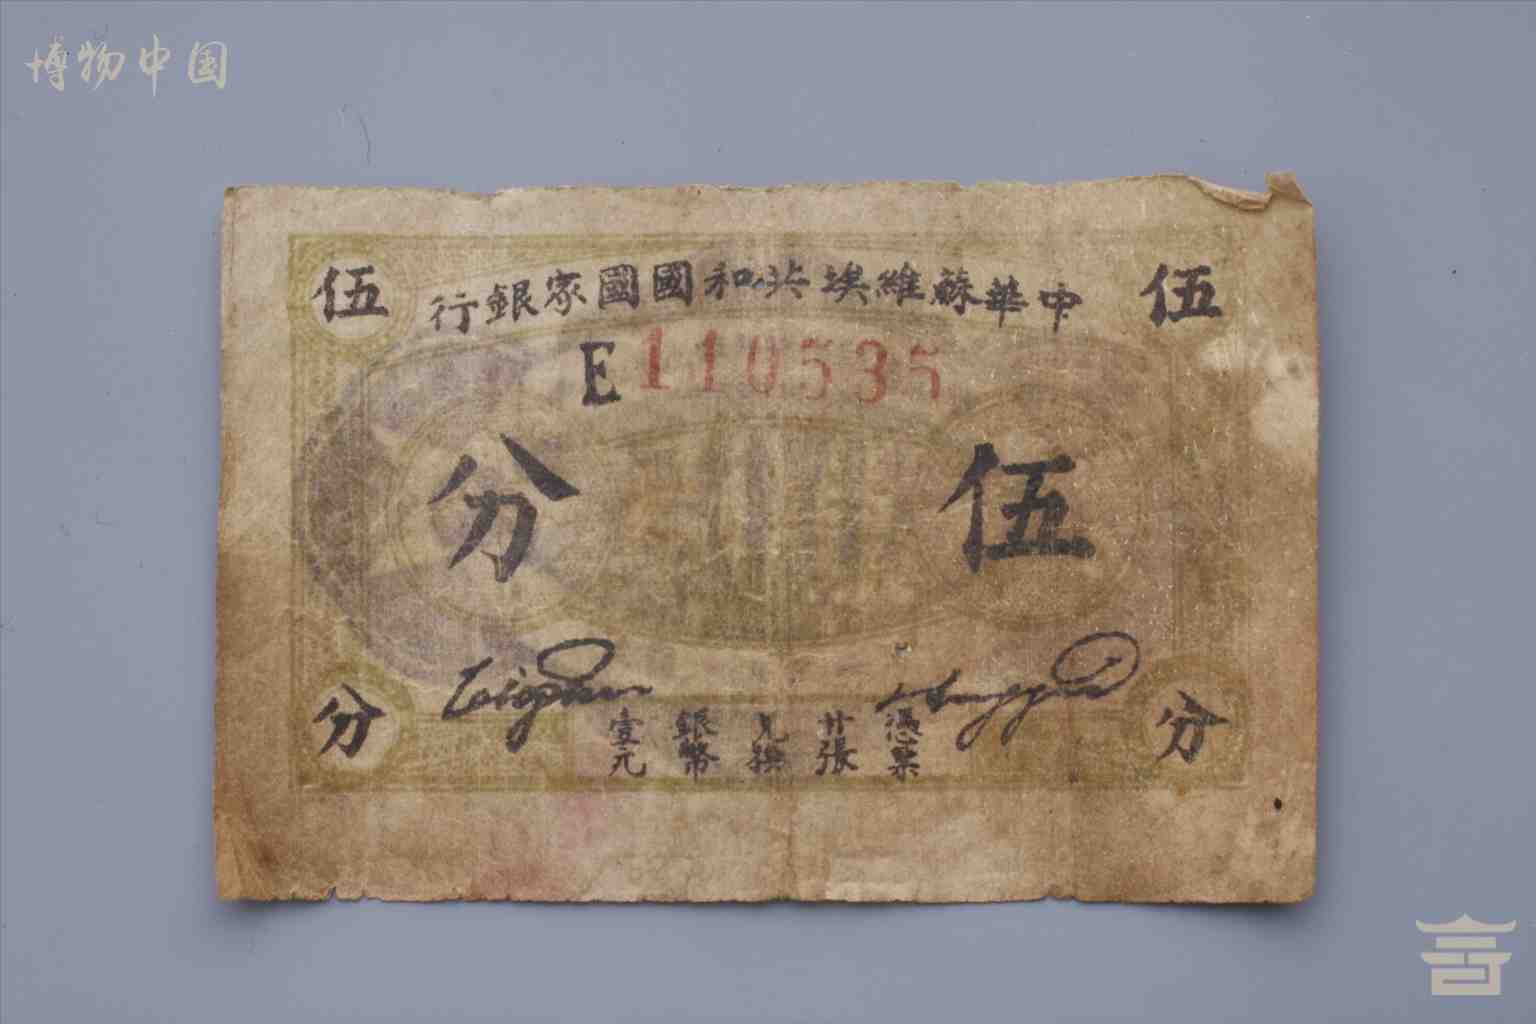 博物中国
伍
中華蘇維埃共和國國家銀行
伍
E110535
伍分
分
分
憑票
廿張
兌換
銀幣
壹元